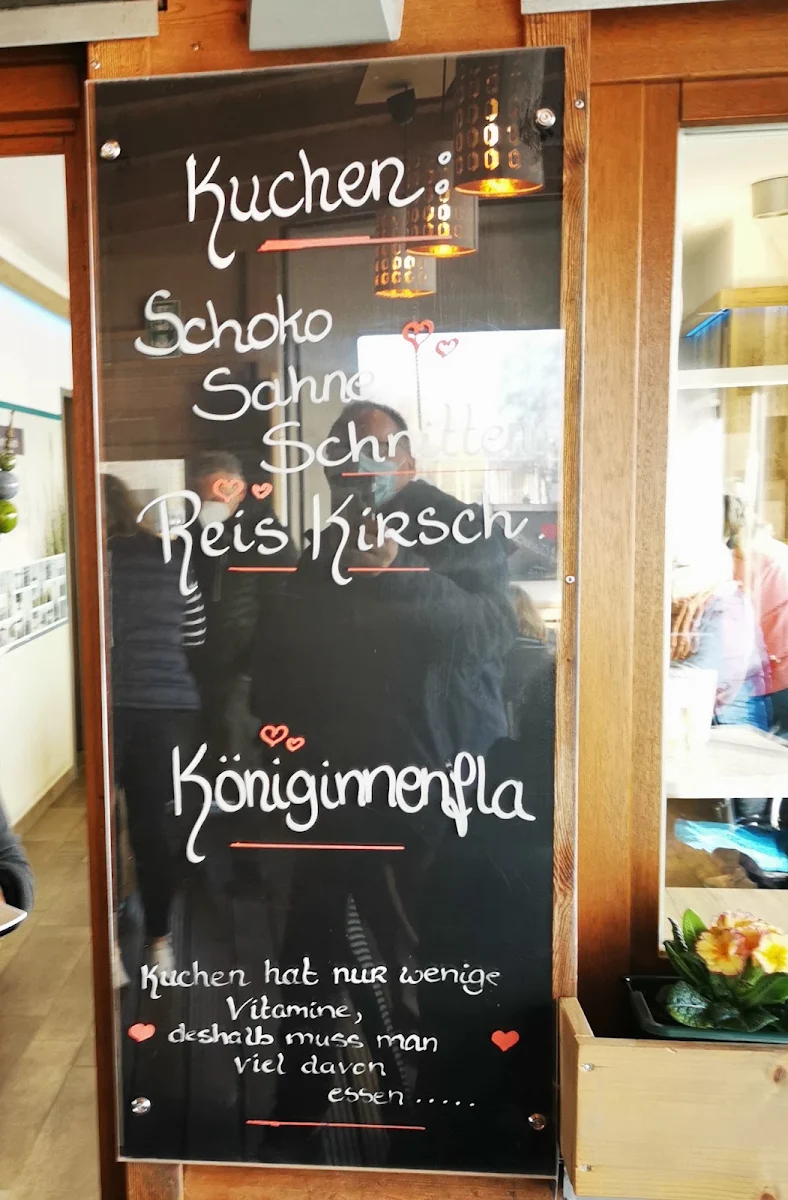 Kuchen:
Schoko
Sahne
Schnitten
Reis Kirsch
Königinnenfla
Kuchen hat nur wenige
Vitamine,
deshalb muss man
viel davon
essen .....